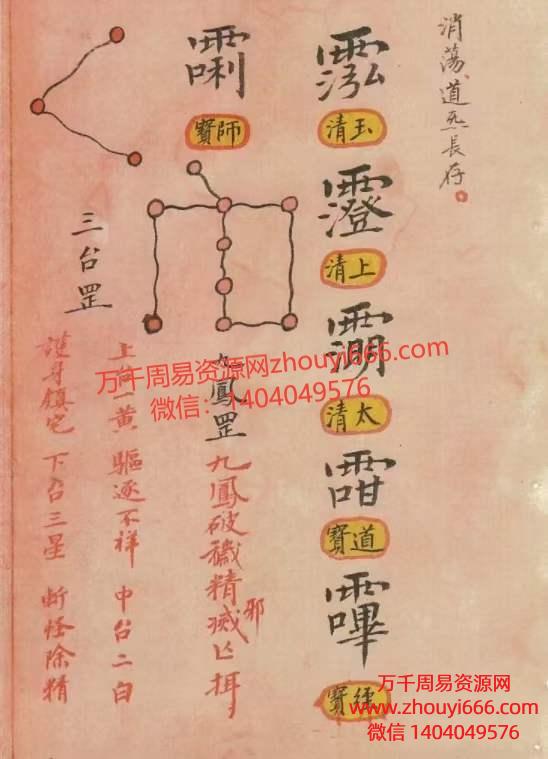 消蕩道炁長存。
霐
玉清
上清
太清
道寶
經寶
師寶
九鳳罡
九鳳破穢精邪滅亡
三台罡
上台一黃 驅逐不祥 中台二白
護身鎮宅 下台三星 斬怪除精
万千周易资源网zhouyi666.com
微信：1404049576
万千周易资源网
www.zhouyi666.com
微信 1404049576